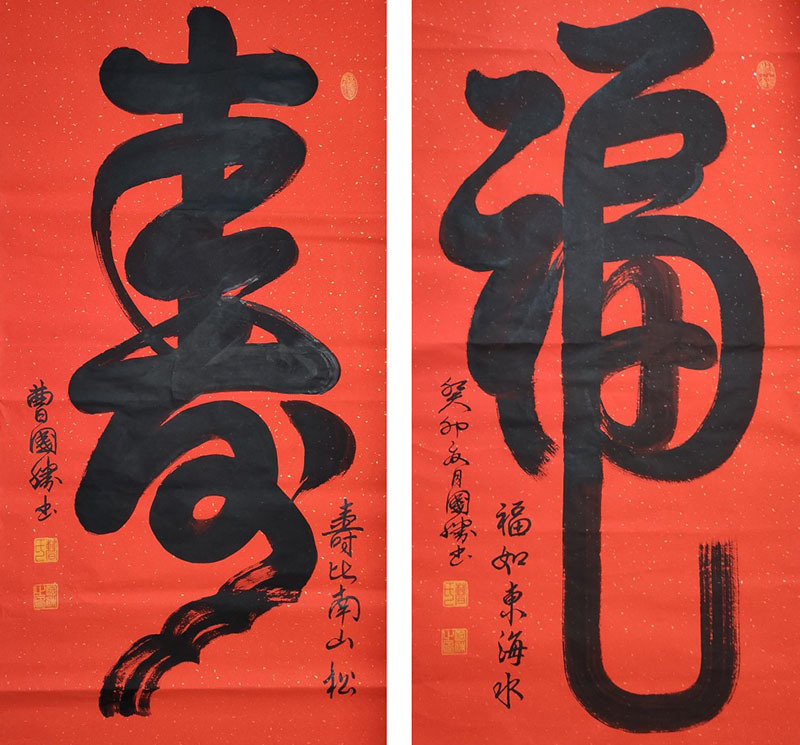 福
福如東海水
癸卯夏月國勝书
壽
壽比南山松
曹國勝书